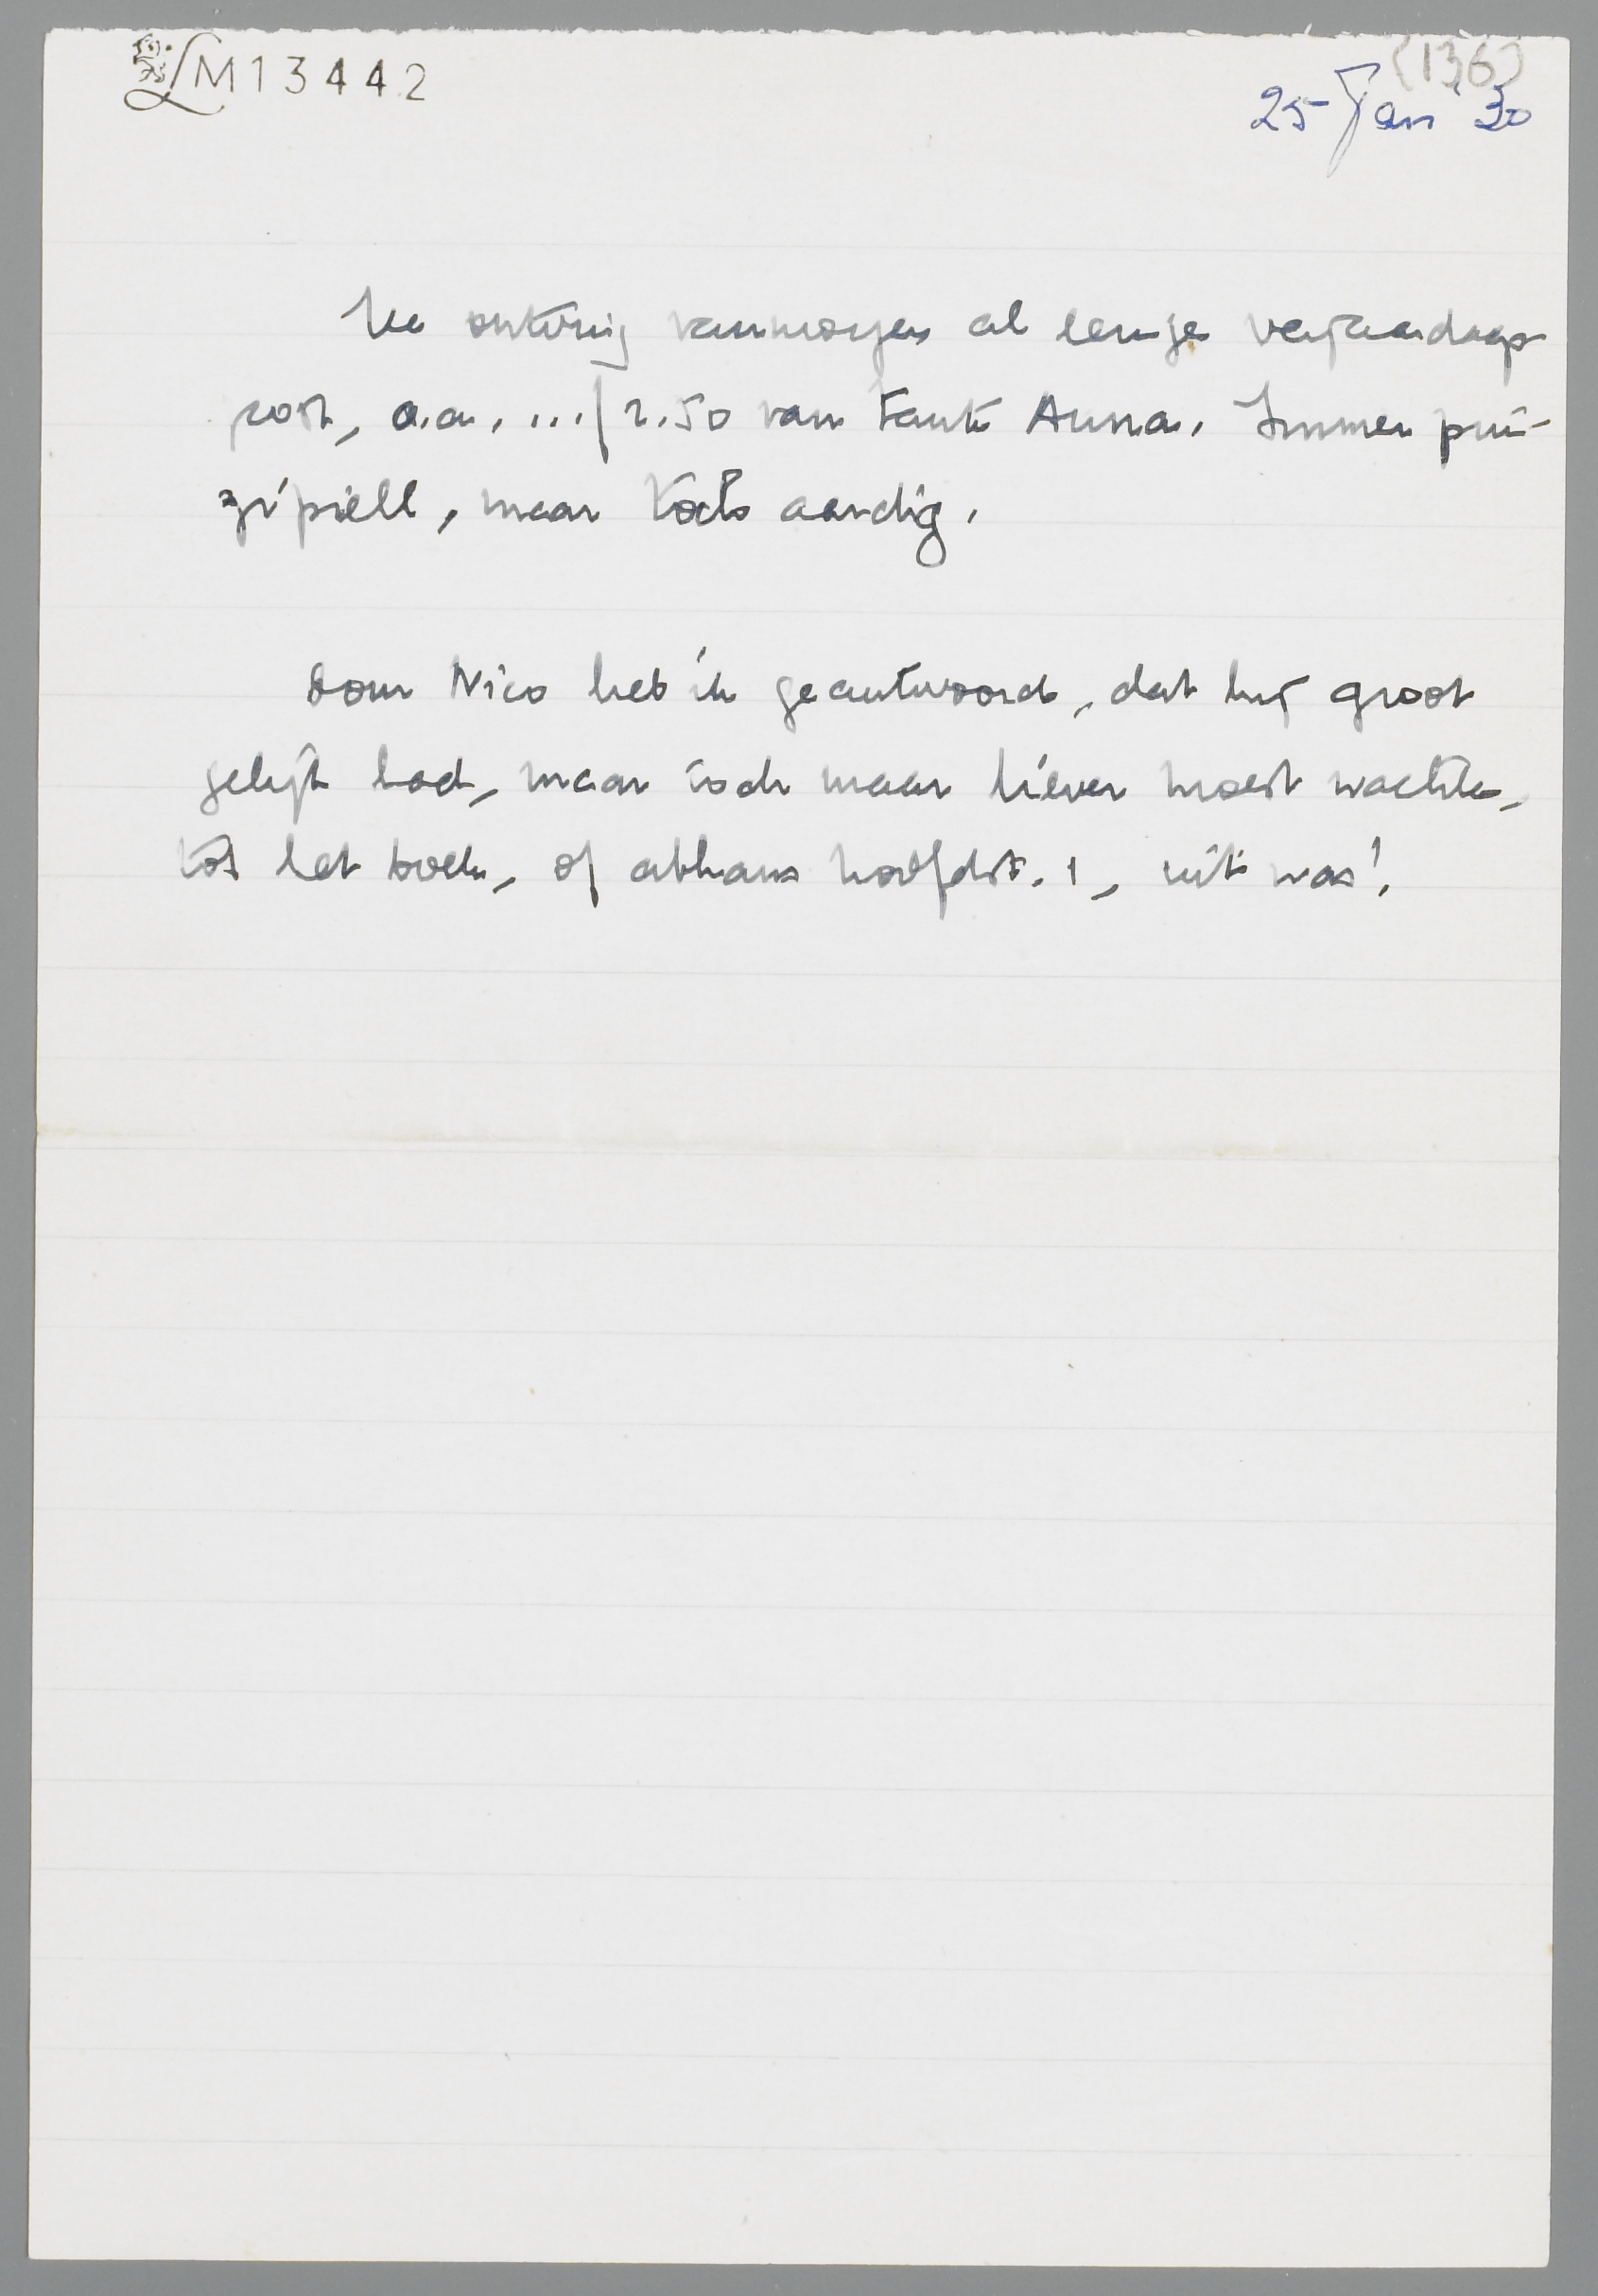 LM13442
(136)
25 Jan '30
Ik ontving vanmorgen al eenige verjaardags-
post, o.a. ... f 2.50 van Tante Anna. Immer prin-
zipiell, maar toch aardig.
Oom Nico heb ik geantwoord, dat hij groot
gelijk had, maar toch maar liever moest wachten,
tot het boek, of althans hoofdst. 1, uit was!